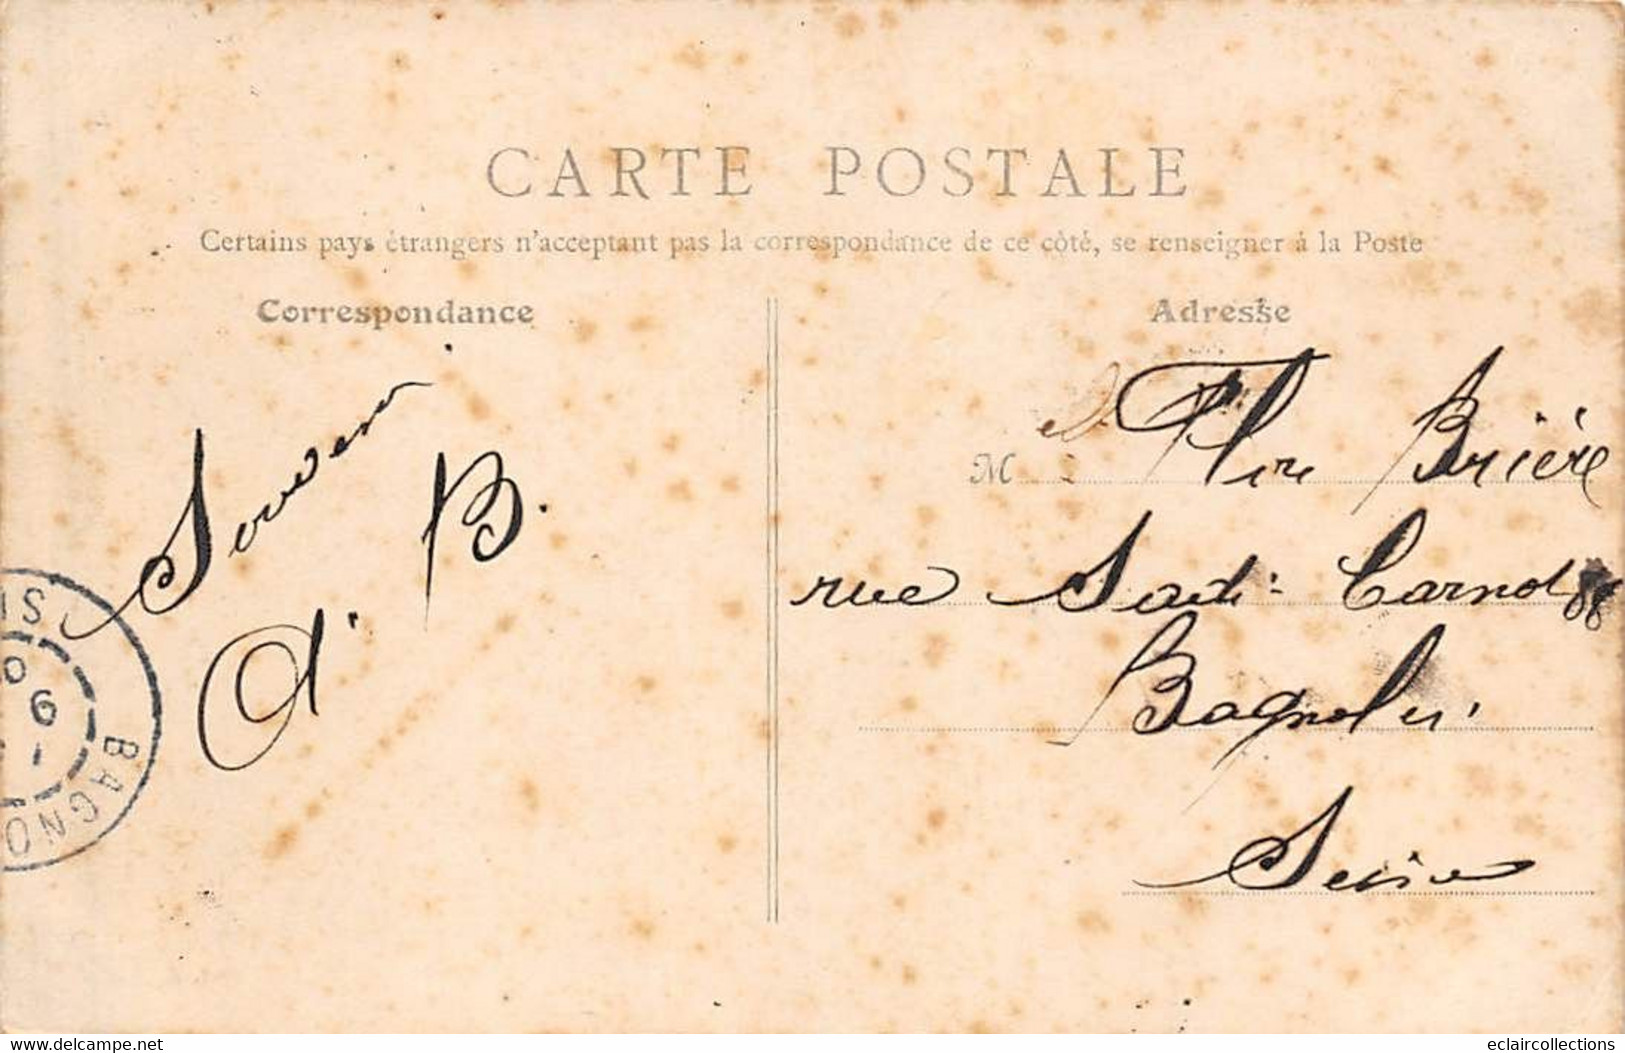 CARTE POSTALE
Certains pays étrangers n'acceptant pas la correspondance de ce côté, se renseigner à la Poste
Correspondance
Souvenir
A. B.
Adresse
M Brière
rue Sadi-Carnot 88
Bagnolet
Seine
BAGNO
6
www.delcampe.net
eclaircollections